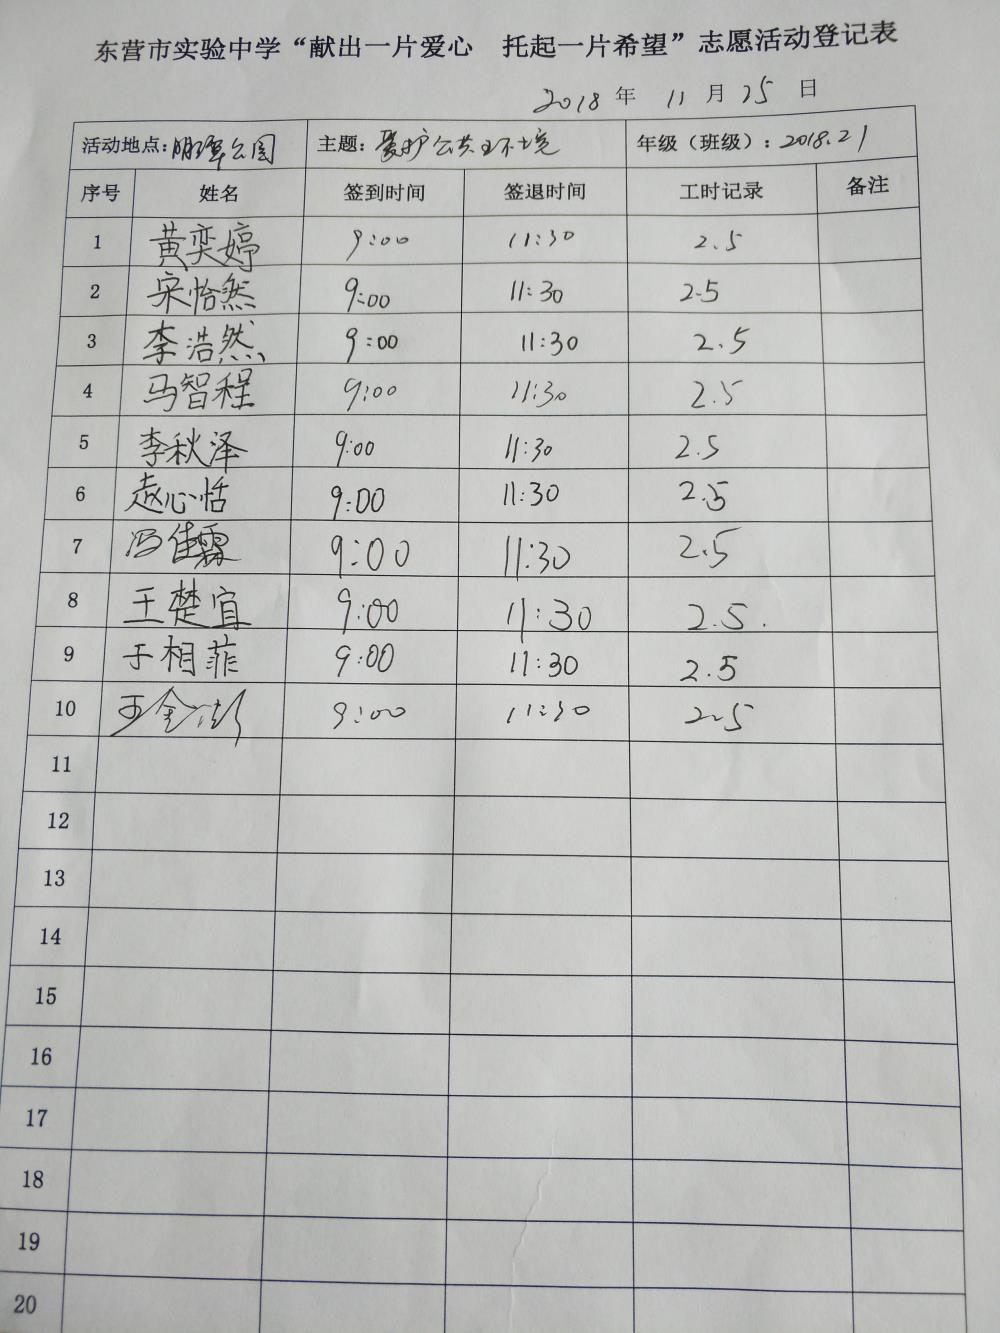 东营市实验中学“献出一片爱心 托起一片希望”志愿活动登记表
2018 年 11 月 25 日
活动地点: 公园 主题: 爱护公共环境 年级（班级）: 2018.21
序号 姓名 签到时间 签退时间 工时记录 备注
1 黄奕婷 9:00 11:30 2.5
2 宋怡然 9:00 11:30 2.5
3 李浩然 9:00 11:30 2.5
4 马智程 9:00 11:30 2.5
5 李秋泽 9:00 11:30 2.5
6 赵心恬 9:00 11:30 2.5
7 冯佳霖 9:00 11:30 2.5
8 王楚宜 9:00 11:30 2.5.
9 于相菲 9:00 11:30 2.5
10 王金澎 9:00 11:30 2.5
11
12
13
14
15
16
17
18
19
20